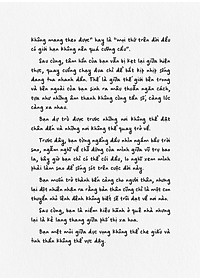 không mang theo được" hay là "mọi thứ trên đời đều
có giới hạn không nên quá cưỡng cầu".
Sau cùng, tâm hồn của bạn vẫn bị kẹt lại giữa hiện
thực, quay cuồng chạy đua chỉ để bắt kịp nhịp sống
đang lướt nhanh đến. Thế là giữa thế giới bên trong
và bên ngoài của bạn sinh ra mâu thuẫn ngăn cách,
tựa như những âm thanh không cùng tần số, càng lúc
càng xa nhau.
Bạn do dự trước những nơi không thể đặt
chân đến và những nơi không thể quay trở về.
Trước đây, bạn từng ngẩng đầu nhìn ngắm bầu trời
sao, ngẫm nghĩ về chỗ đứng của mình giữa vũ trụ bao
la, bây giờ bạn chỉ có thể cúi đầu, lo nghĩ xem mình
phải làm sao để sống sót trên cuộc đời này.
Bạn muốn trở thành bến cảng cho người khác, nhưng
lại đột nhiên nhận ra rằng bản thân cũng chỉ là một con
thuyền nhỏ lênh đênh không biết sẽ trôi dạt về nơi nào.
Sau cùng, bạn là niềm kiêu hãnh ở quê nhà nhưng
lại là kẻ lang thang giữa phố thị xa hoa.
Bạn mệt mỏi giữa dục vọng không thể che giấu và
tinh thần không thể vực dậy.